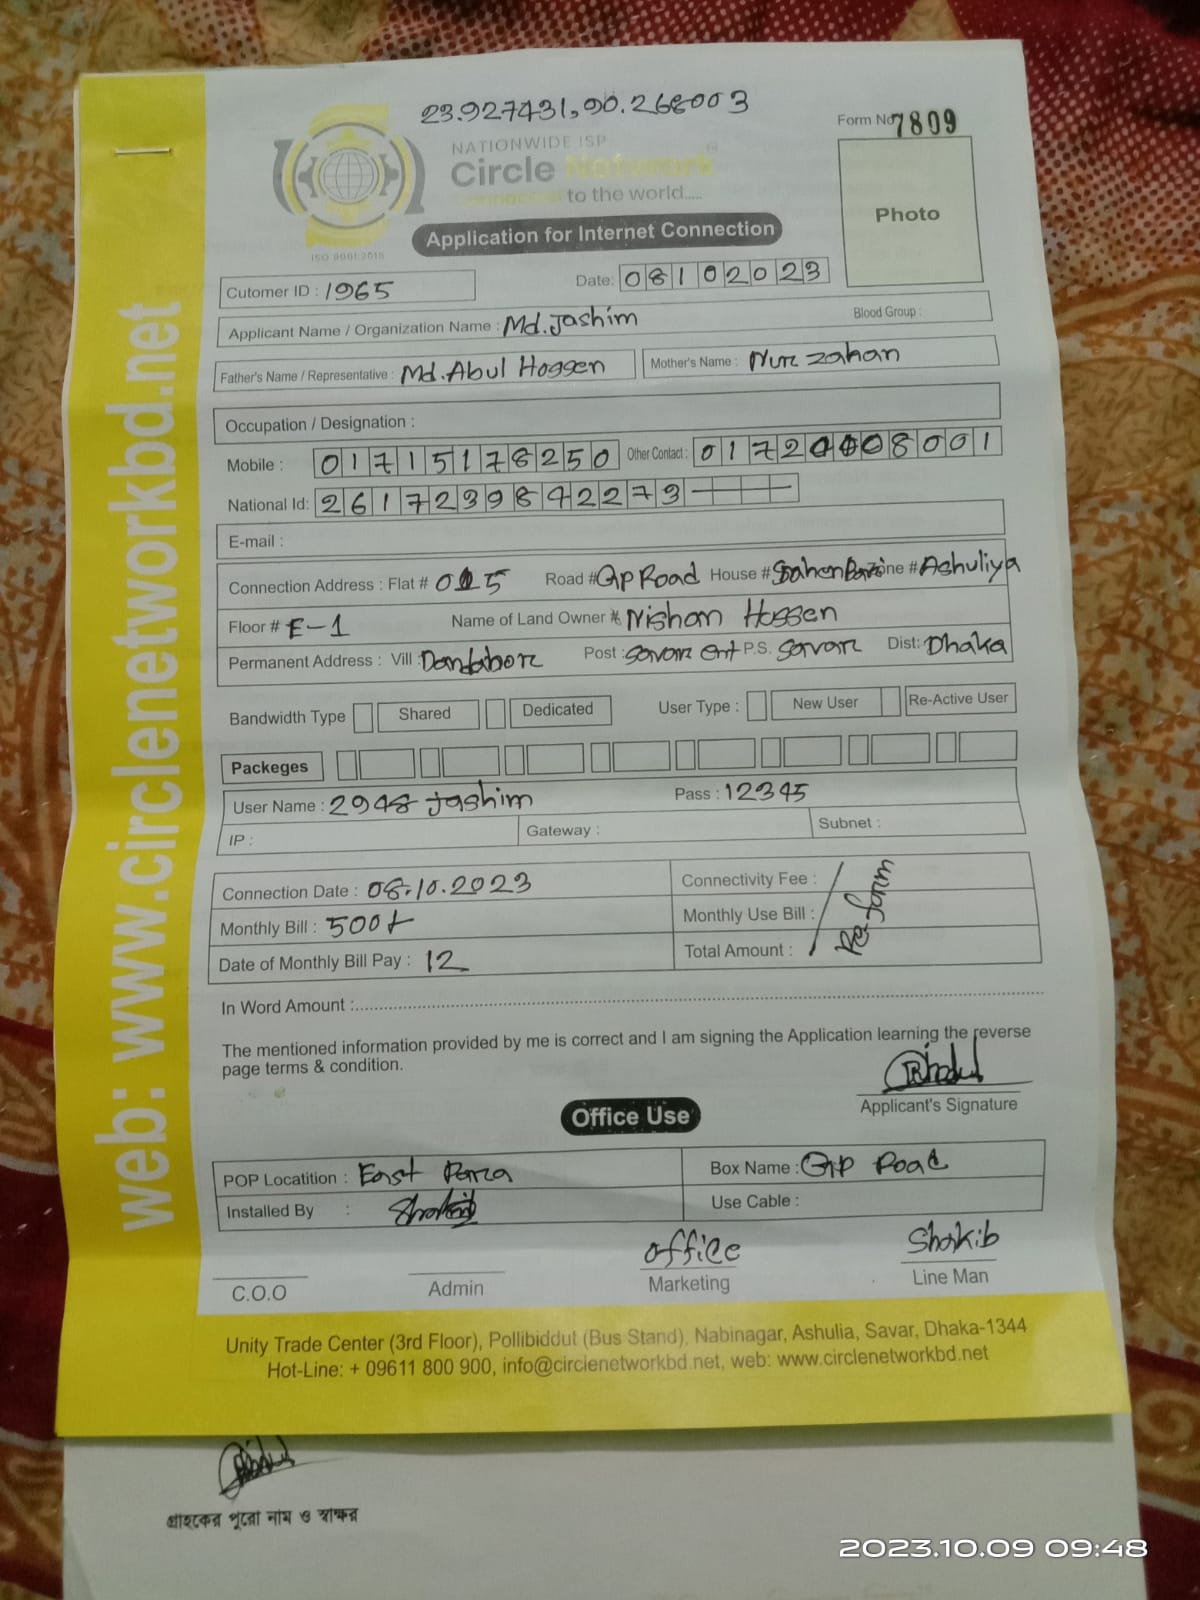 23.927431, 90.268003
Form No 7809
NATIONWIDE ISP
Circle Network
Connected to the world.....
ISO 9001:2015
Photo
Application for Internet Connection
Cutomer ID : 1965
Date: 08102023
Applicant Name / Organization Name : Md. Jashim
Blood Group :
Father's Name / Representative : Md. Abul Hossen
Mother's Name : Nur zahan
Occupation / Designation :
Mobile : 01715178250
Other Contact : 017200
8001
National Id: 2617239842273
E-mail :
Connection Address : Flat # 015 Road # GP Road House # Zone # Ashuliya
Floor # E-1 Name of Land Owner # Nishan Hossen
Permanent Address : Vill : Post : Savar P.S. Savar Dist: Dhaka
Bandwidth Type Shared Dedicated User Type : New User Re-Active User
Packeges
User Name : 2948 Jashim Pass : 12345
IP : Gateway : Subnet :
Connection Date : 08.10.2023 Connectivity Fee :
Monthly Bill : 500/- Monthly Use Bill :
Re-form
Date of Monthly Bill Pay : 12 Total Amount :
In Word Amount :
The mentioned information provided by me is correct and I am signing the Application learning the reverse
page terms & condition.
Applicant's Signature
Office Use
POP Locatition : East Para Box Name : GP Road
Installed By : Shakib Use Cable :
office Shakib
C.O.O Admin Marketing Line Man
Unity Trade Center (3rd Floor), Pollibiddut (Bus Stand), Nabinagar, Ashulia, Savar, Dhaka-1344
Hot-Line: + 09611 800 900, info@circlenetworkbd.net, web: www.circlenetworkbd.net
web: www.circlenetworkbd.net
গ্রাহকের পুরো নাম ও স্বাক্ষর
2023.10.09 09:48